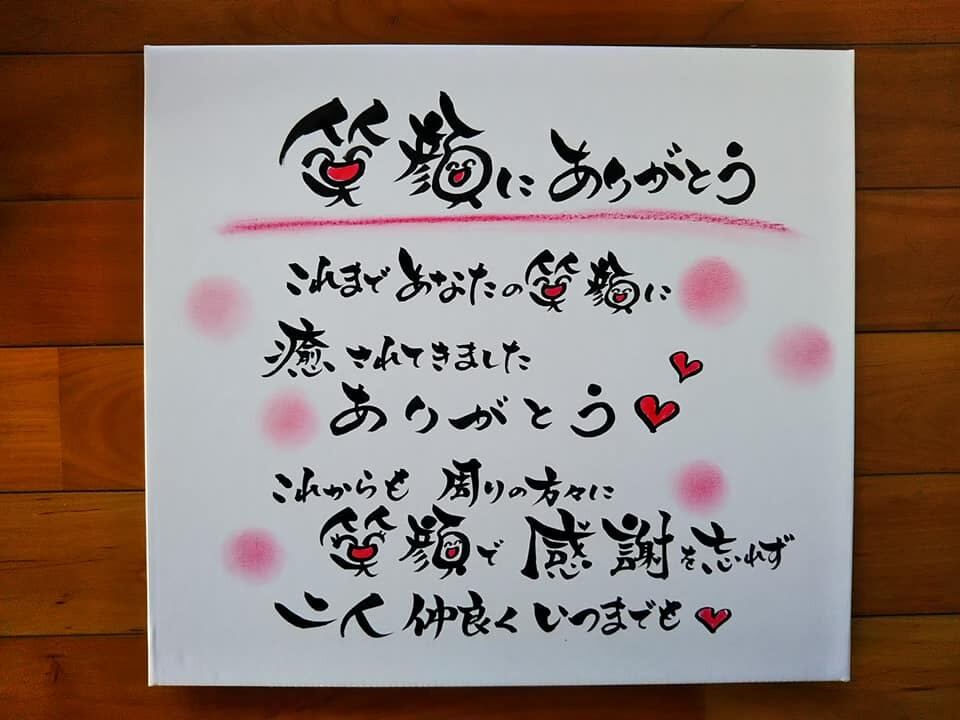 笑顔にありがとう
これまであなたの笑顔に
癒されてきました
ありがとう
これからも 周りの方々に
笑顔で 感謝を忘れず
二人 仲良く いつまでも